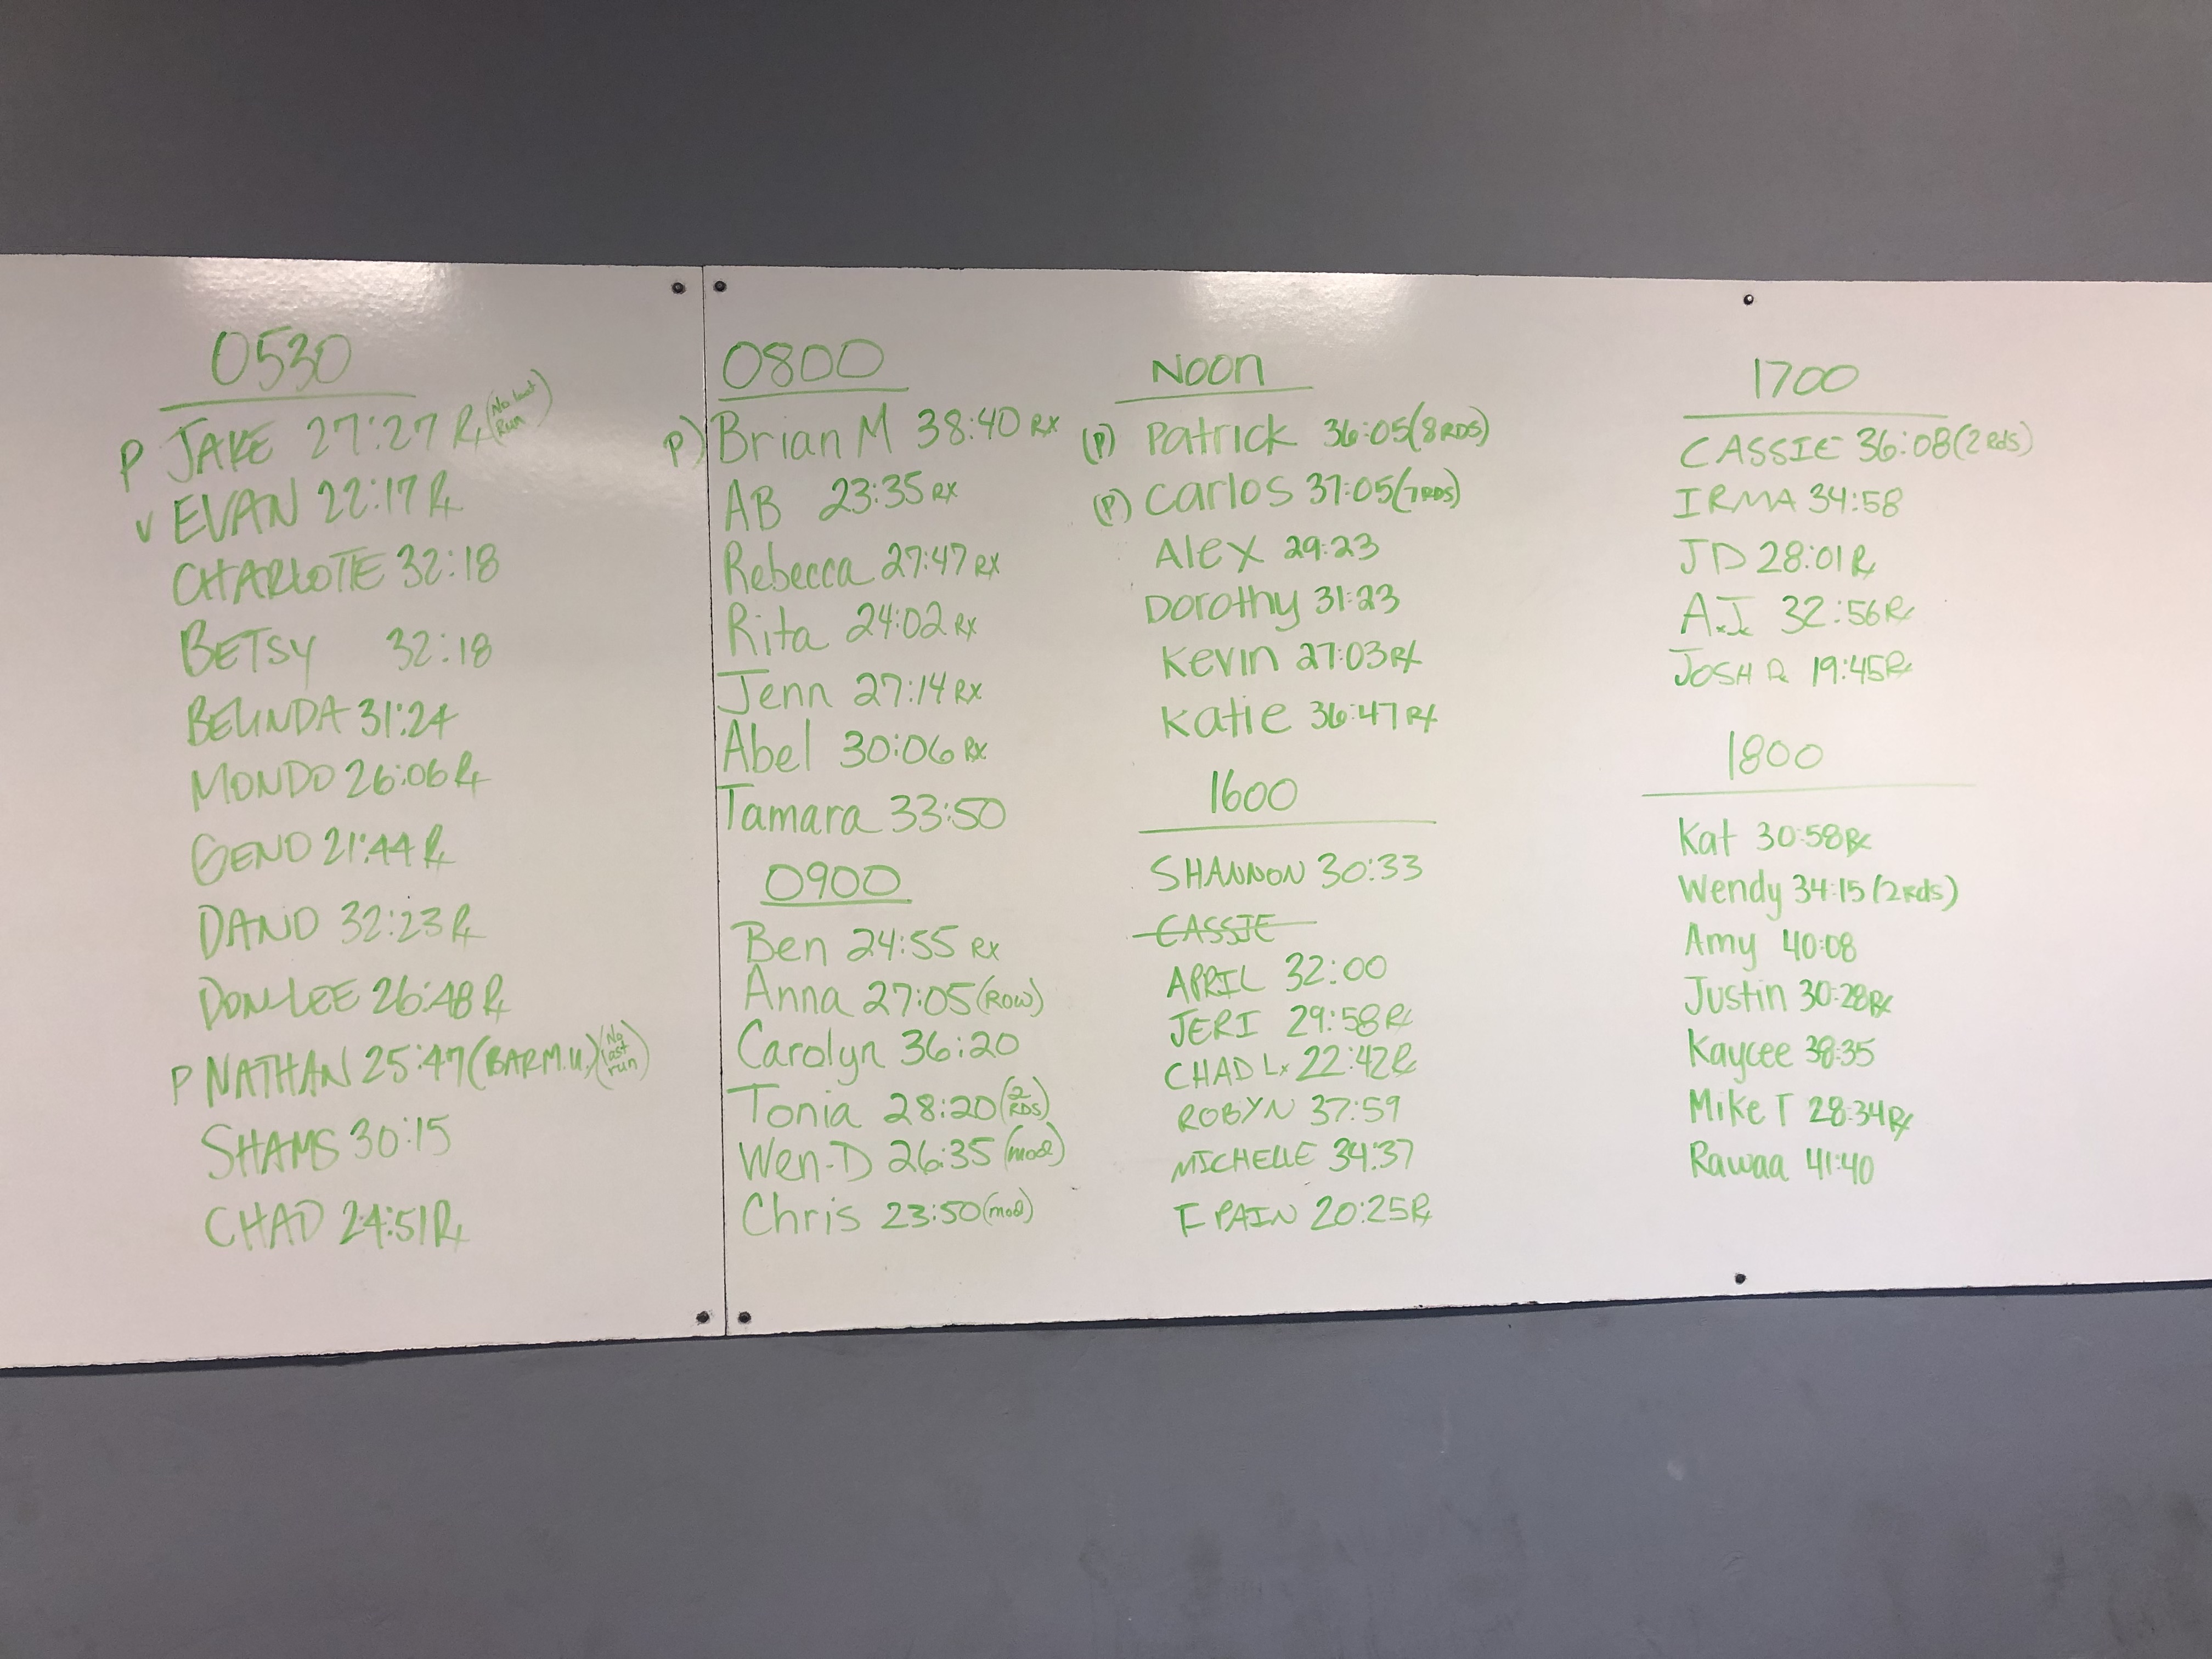 0530
P JAKE 27:27 Rx (No last Run)
V EVAN 22:17 Rx
CHARLOTTE 32:18
BETSY 32:18
BELINDA 31:24
MONDO 26:06 Rx
GENO 21:44 Rx
DANO 32:23 Rx
DON-LEE 26:48 Rx
P NATHAN 25:47 (BAR M.U.) (No last run)
SHAMS 30:15
CHAD 24:51 Rx
0800
P) Brian M 38:40 RX
AB 23:35 RX
Rebecca 27:47 RX
Rita 24:02 RX
Jenn 27:14 RX
Abel 30:06 RX
Tamara 33:50
0900
Ben 24:55 RX
Anna 27:05 (ROW)
Carolyn 36:20
Tonia 28:20 (2 RDS)
Wen-D 26:35 (mod)
Chris 23:50 (mod)
NOON
(P) Patrick 36:05 (8 RDS)
(P) Carlos 37:05 (7 RDS)
Alex 29:23
Dorothy 31:23
Kevin 27:03 Rx
Katie 36:47 Rx
1600
SHANNON 30:33
CASSIE
APRIL 32:00
JERI 29:58 Rx
CHAD L. 22:42 Rx
ROBYN 37:59
MICHELLE 34:37
PAIN 20:25 Rx
1700
CASSIE 36:08 (2 Rds)
IRMA 34:58
JD 28:01 Rx
A.J. 32:56 Rx
JOSH 19:45 Rx
1800
Kat 30:58 Rx
Wendy 34:15 (2 Rds)
Amy 40:08
Justin 30:28 Rx
Kaycee
Mike T 28:34 Rx
Rawaa 41:40